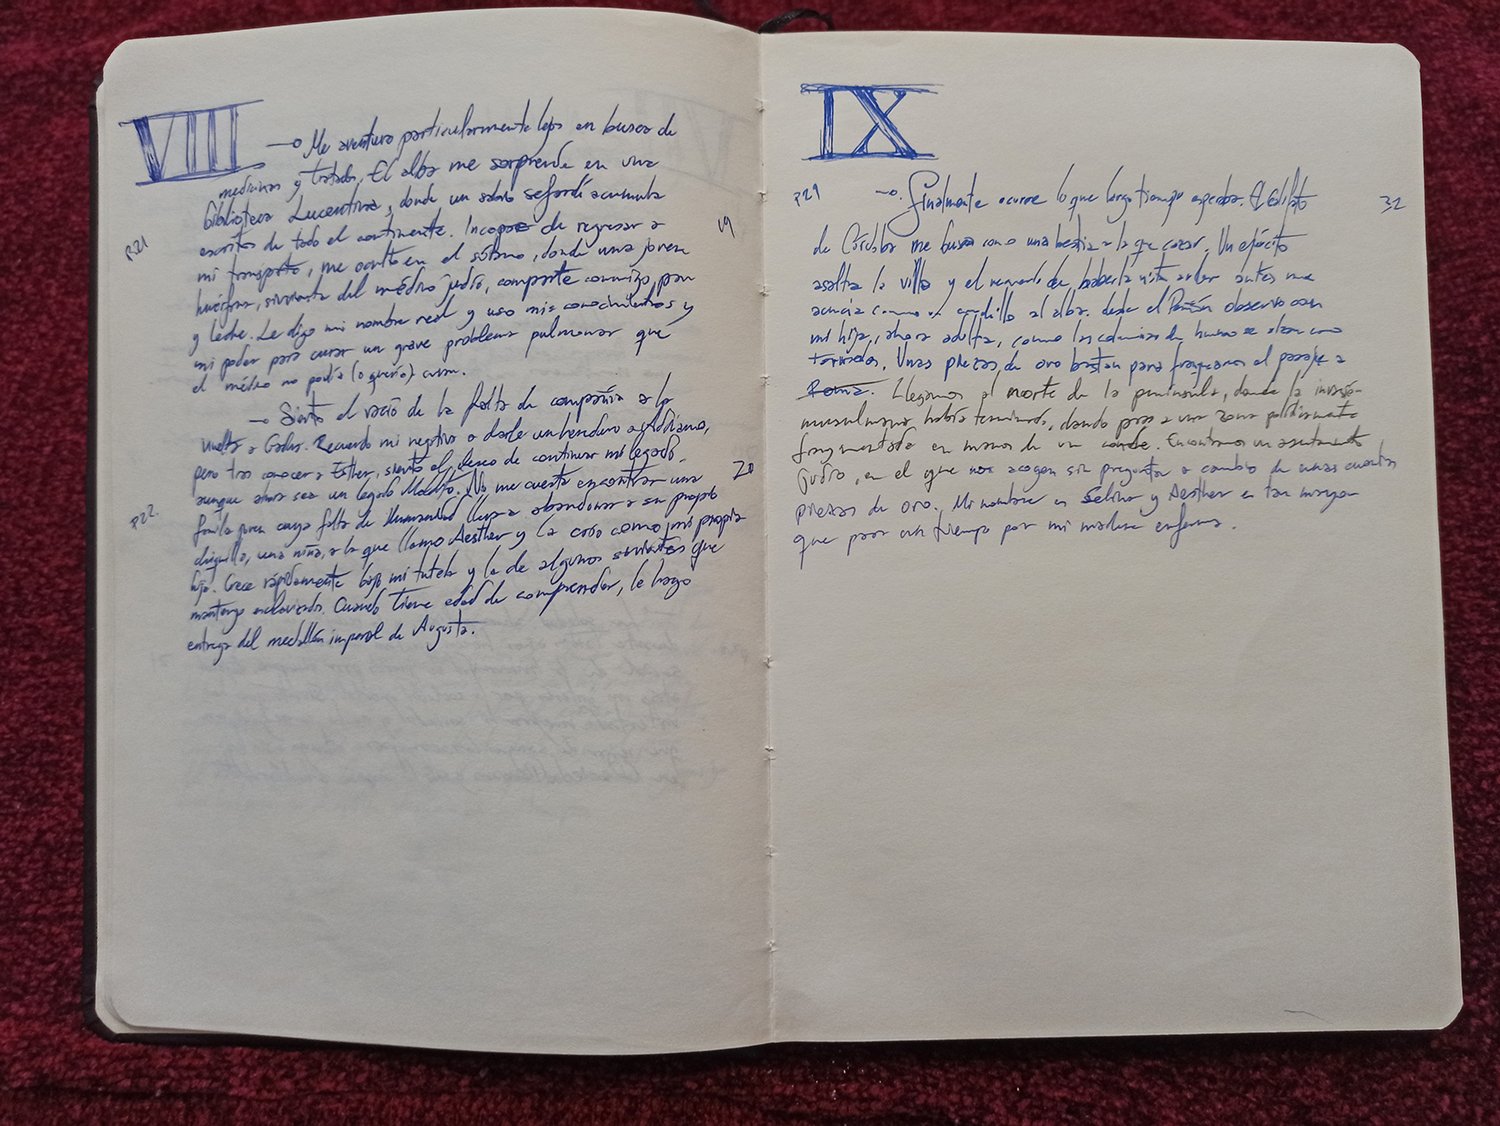 VIII
→ Me aventuro particularmente lejos en busca de
medicinas y tratados. El alba me sorprende en una
biblioteca Lucentina, donde un sabio sefardí acumula
P.21
escritos de todo el continente. Incapaz de regresar a
19
mi transporto, me oculto en el sótano, donde una joven
huérfana, sirvienta del médico judío, comparte conmigo, pan
y leche. Le digo mi nombre real y uso mis conocimientos y
mi poder para curar un grave problema pulmonar que
el médico no podía (o quería) curar.
→ Siento el vacío de la falta de compañía a la
vuelta a Gades. Recuerdo mi negativa a darle un heredero a Adriano,
pero tras conocer a Esther, siento el deseo de continuar mi legado,
20
aunque ahora sea un legado Maldito. No me cuesta encontrar una
P.22
familia joven cuya falta de Humanidad llega a abandonar a su propia
chiquilla, una niña, a la que llamo Aesther y la crío como mi propia
hija. Crece rápidamente bajo mi tutela y la de algunos sirvientes que
mantengo esclavizados. Cuando tiene edad de comprender, le hago
entrega del medallón imperial de Augusta.
IX
P29
→ Finalmente ocurre lo que largo tiempo esperaba. El Califato
32
de Córdoba me busca como una bestia a la que cazar. Un ejército
asalta la villa y el recuerdo de haberla visto arder antes me
acucia como un cuchillo al alba. desde el observo con
mi hija, ahora adulta, como las columnas de humo se alzan como
tornados. Unas piezas de oro bastan para franquearnos el pasaje a
Roma. Llegamos al norte de la península, donde la invasión
musulmana había terminado, dando paso a una zona políticamente
fragmentada en manos de un conde. Encontramos un asentamiento
Judío, en el que nos acogen sin preguntar a cambio de unas cuantas
piezas de oro. Mi nombre es Selina y Aesther es tan mayor
que paso un tiempo por mi madre enferma.